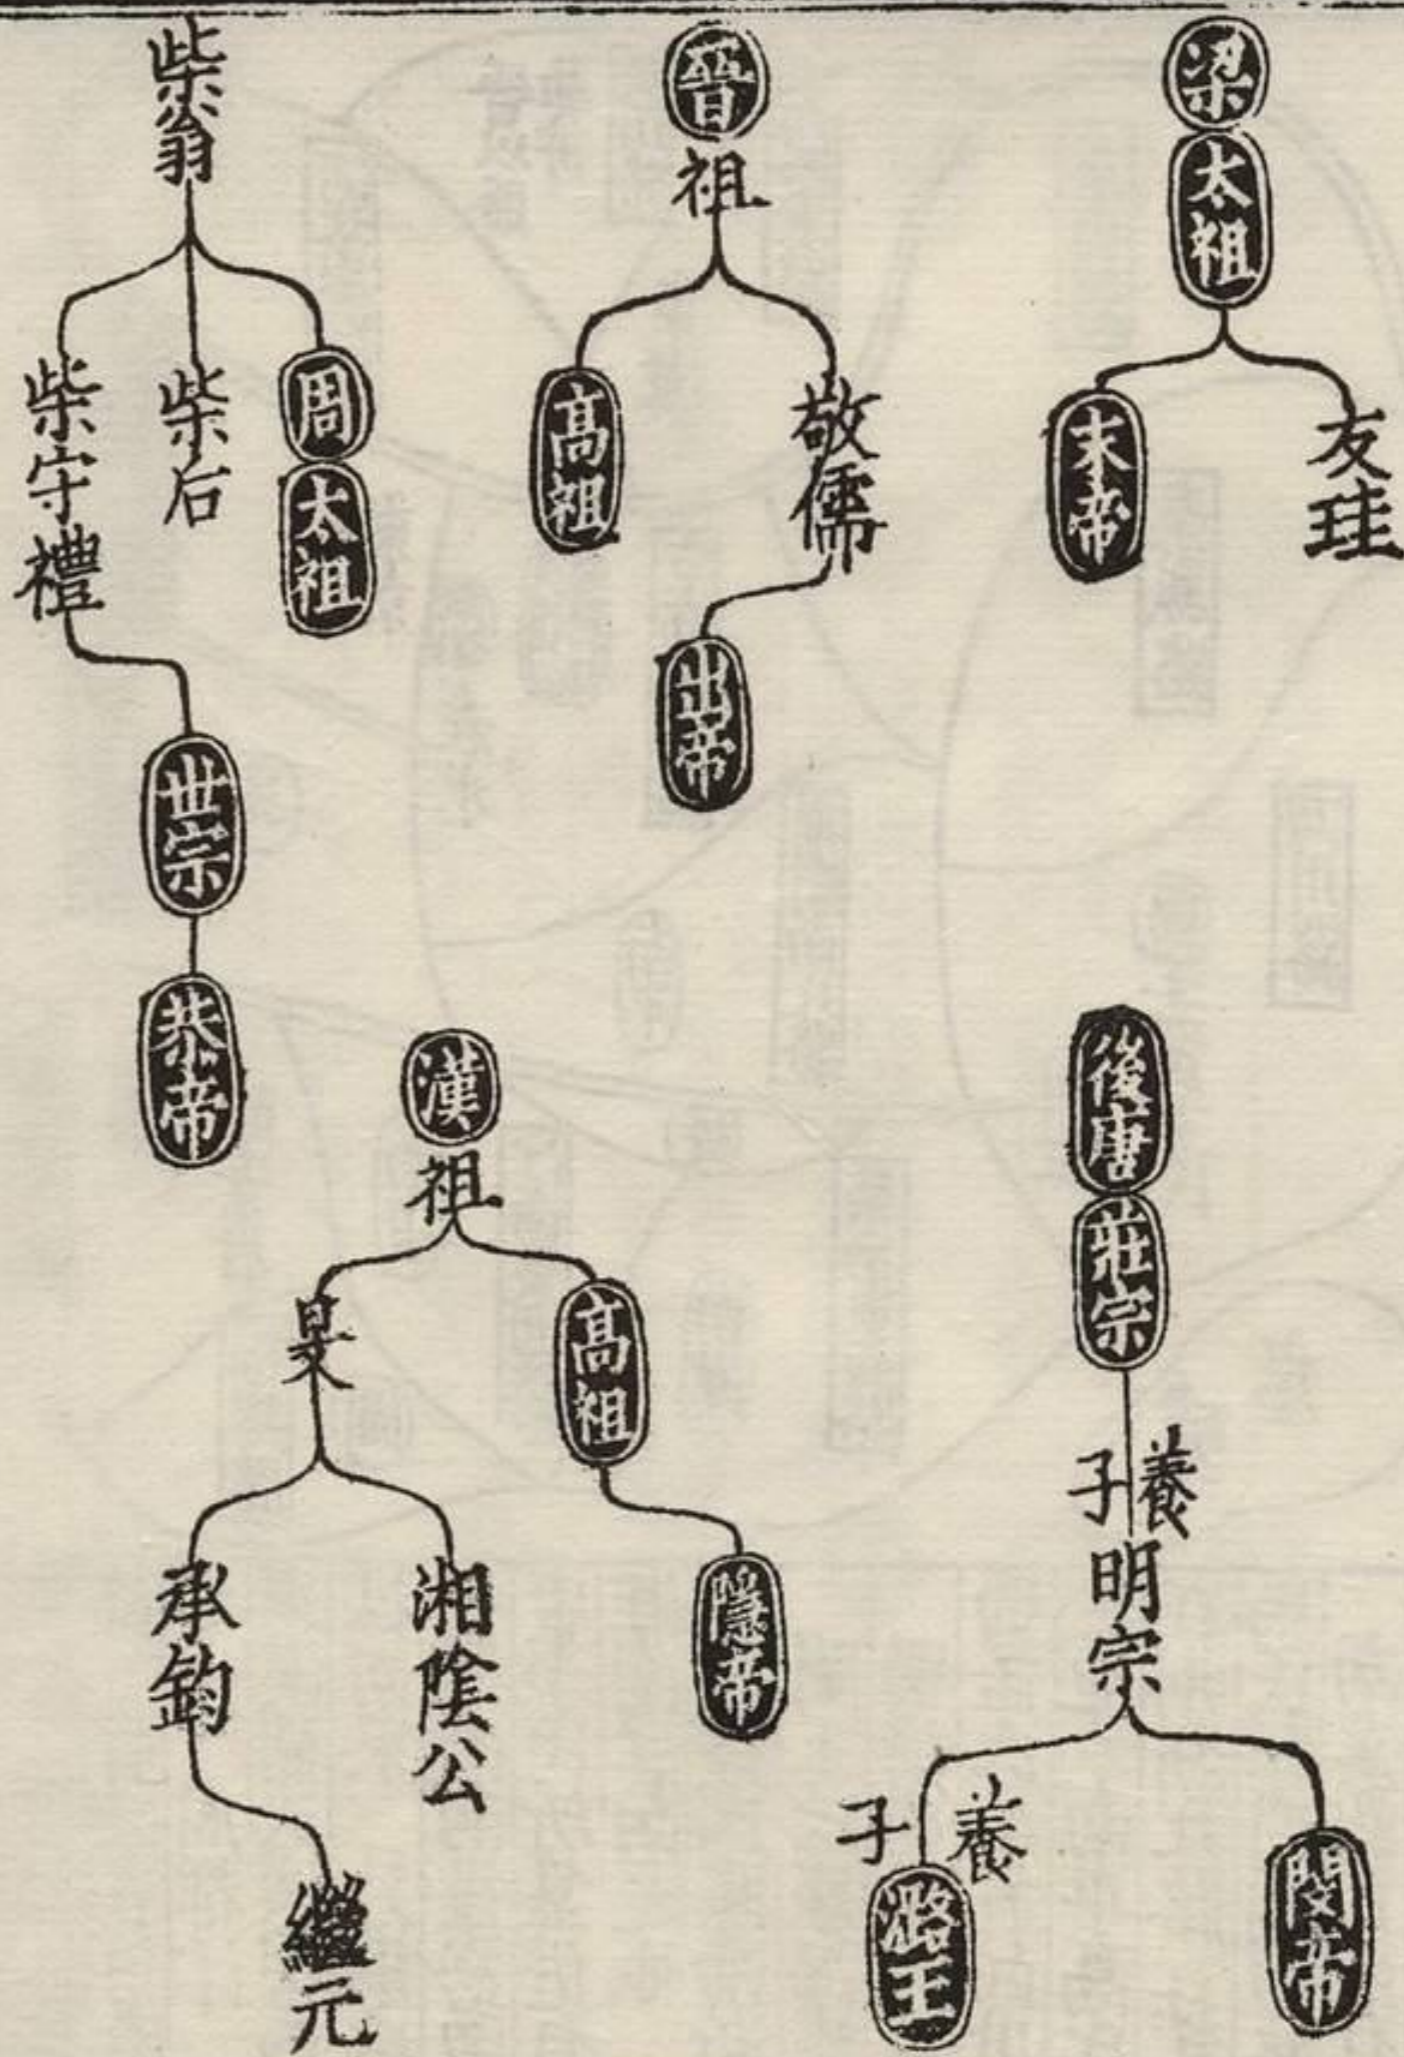 梁
太祖
友珪
末帝
後唐
莊宗
養子
明宗
閔帝
養子
潞王
晉
祖
敬儒
高祖
出帝
漢
祖
高祖
隱帝
旻
湘陰公
承鈞
繼元
柴翁
周
太祖
柴后
柴守禮
世宗
恭帝